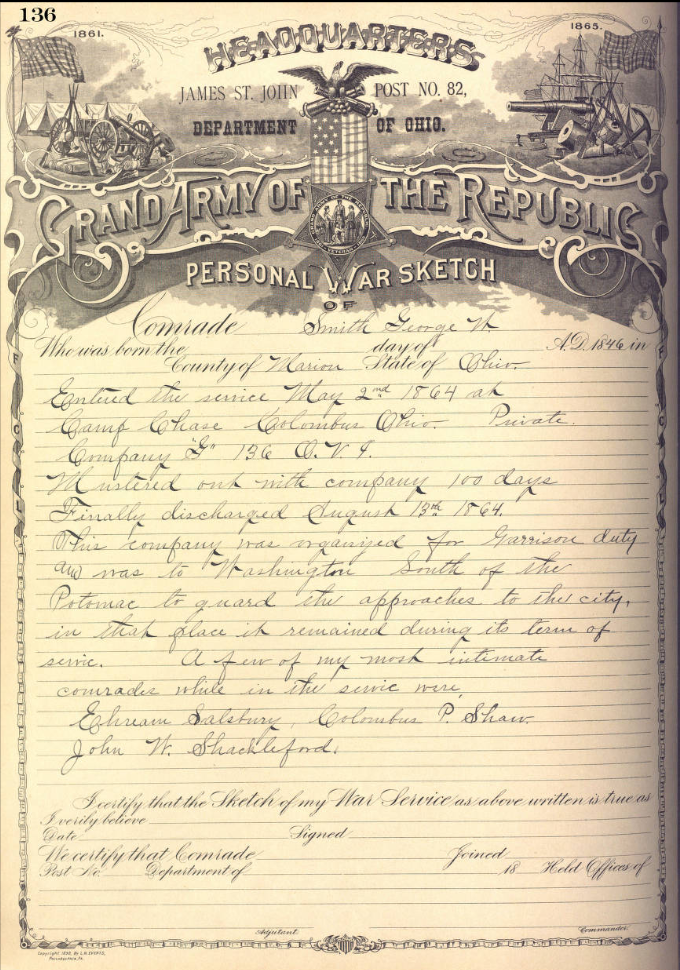 136
1861.
1865.
HEADQUARTERS
JAMES ST. JOHN POST NO. 82,
DEPARTMENT OF OHIO.
GRAND ARMY OF THE REPUBLIC
PERSONAL WAR SKETCH
OF
Comrade Smith George W
Who was born the day of A.D. 1846 in
County of Marion State of Ohio.
Entered the service May 2nd 1864 at
Camp Chase Colombus Ohio. Private.
Company "G" 136 O.V.I.
Mustered out with company 100 days
Finally discharged August 13th 1864.
This company was organized for Garrison duty
and was to Washington South of the
Potomac to guard the approaches to the city,
in that place it remained during its term of
servic. A few of my most intimate
comrades while in the servic were,
Ehream Salsbury, Colombus P. Shaw
John W. Shackleford.
I certify that the Sketch of my War Service as above written is true as
I verily believe
Date Signed
We certify that Comrade Joined
Post No. Department of 18 Held Offices of
Adjutant. Commander
Copyright, 1890, By
Philadelphia, Pa.